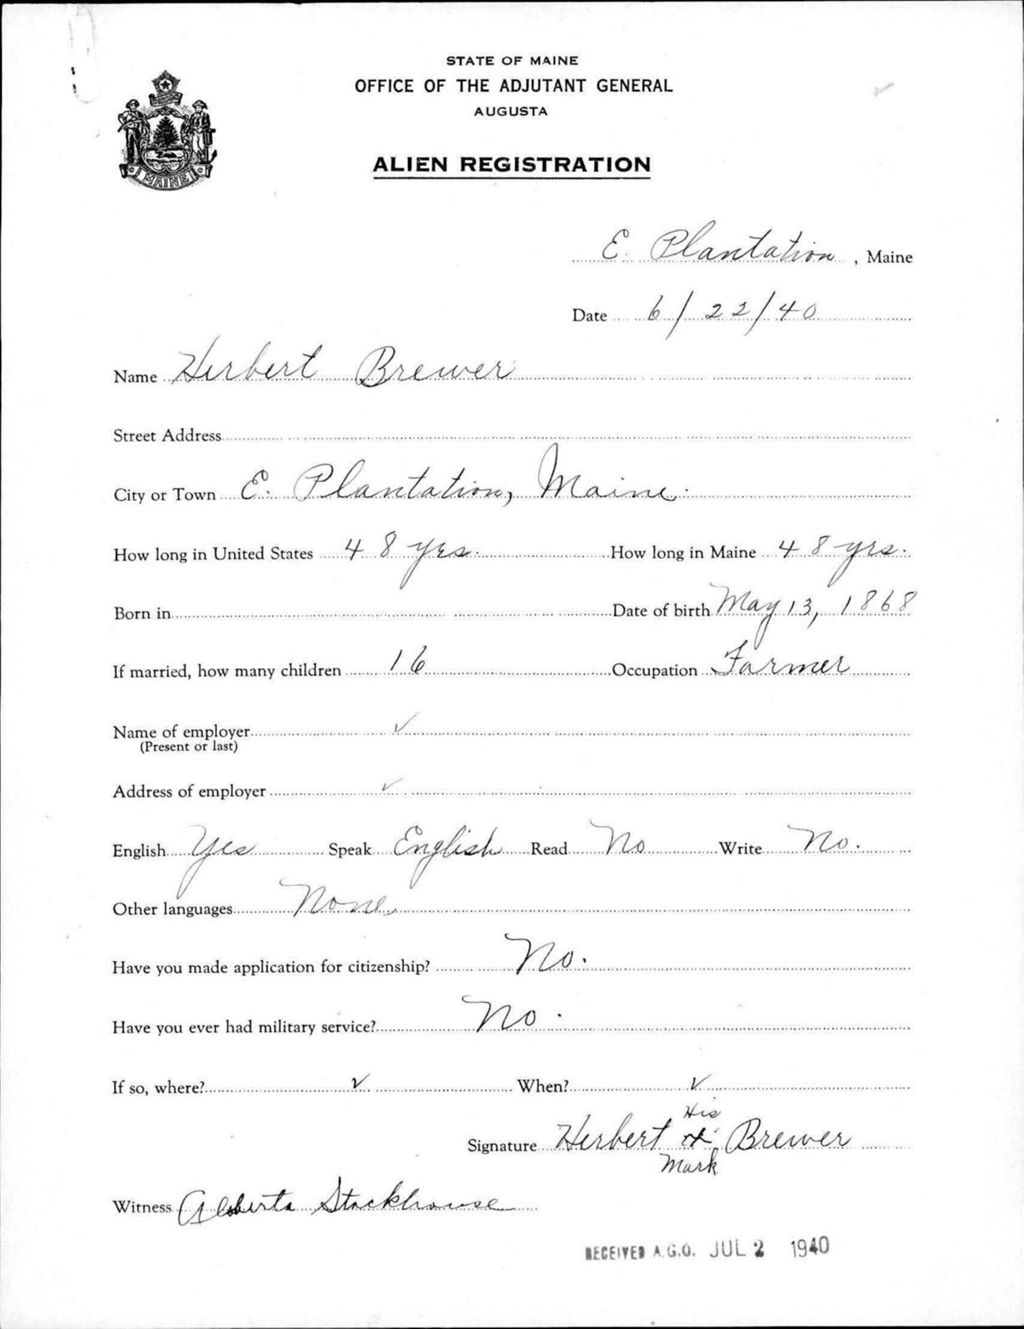 STATE OF MAINE
OFFICE OF THE ADJUTANT GENERAL
AUGUSTA
MAINE
ALIEN REGISTRATION
E. Plantation, Maine
Date 6/22/40
Name Herbert Brewer
Street Address
City or Town E. Plantation, Maine.
How long in United States 48 yrs. How long in Maine 48 yrs.
Born in Date of birth May 13, 1868
If married, how many children 16 Occupation Farmer
Name of employer ✓
(Present or last)
Address of employer ✓
English Yes Speak English Read No Write No.
Other languages None.
Have you made application for citizenship? No.
Have you ever had military service? No.
If so, where? ✓ When? ✓
His
Signature Herbert X Brewer
Mark
Witness Alberta Stackhouse
RECEIVED A.G.O. JUL 2 1940